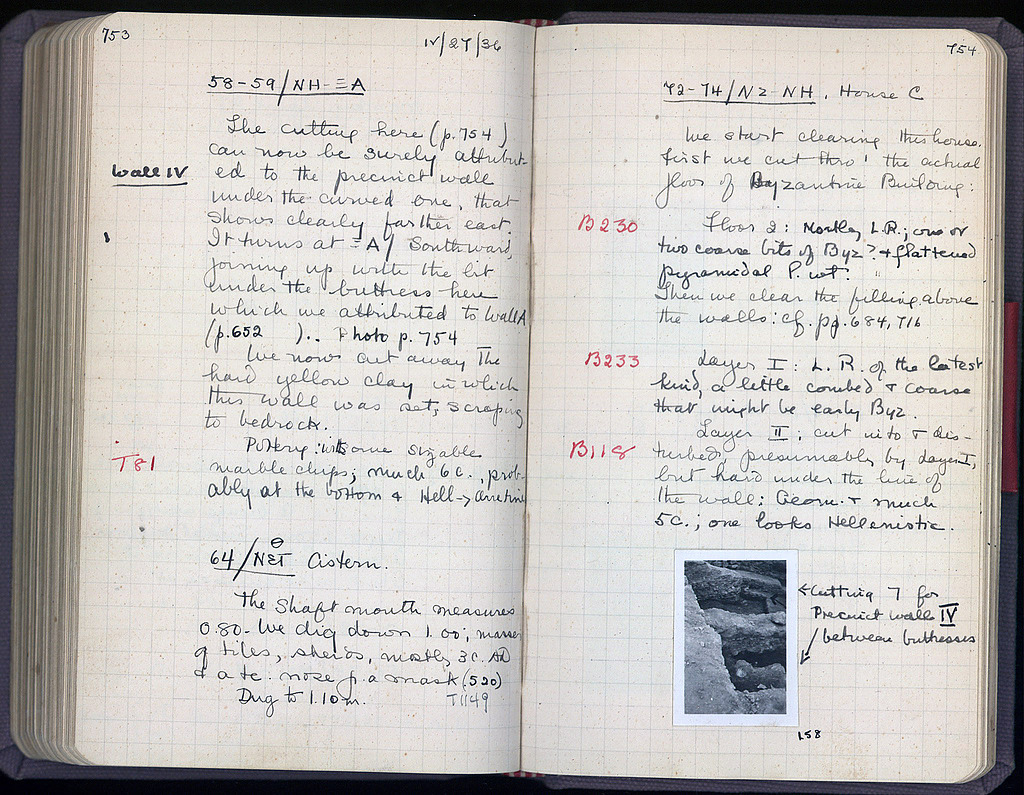 753
IV/27/36
58-59/NH-ΞA
The cutting here (p.754)
can now be surely attribut-
Wall IV
ed to the precinct wall
under the curved one, that
shows clearly farther east.
It turns at ΞA/ Southward,
joining up with the bit
under the buttress here
which we attributed to Wall A
(p.652 ).. Photo p. 754
We now cut away the
hard yellow clay in which
this wall was set, scraping
to bedrock.
T81
Pottery: with some sizable
marble chips; much 6c., prob-
ably at the bottom & Hell → Arretine
Θ
64/NET Cistern.
The Shaft mouth measures
0.80. We dig down 1.00; masses
of tiles, sherds, mostly 3c. AD
& a tc. nose f. a mask (520)
Dug to 1.10 m. T1149
754
72-74/NZ-NH, House C
We start clearing this house.
First we cut thro' the actual
floor of Byzantine Building:
B230
Floor 2: Mostly L.R.; one or
two coarse bits of Byz? & flattened
pyramidal l. wt.
Then we clear the filling above
the walls: cf. pp. 684, 716
B233
Layer I: L. R. of the latest
kind, a little combed & coarse
that might be early Byz.
Layer II; cut into & dis-
B118
turbed presumably by Layer I,
but hard under the line of
the wall: Geom. & much
5C.; one looks Hellenistic.
← Cutting for
Precinct wall IV
between buttresses
158